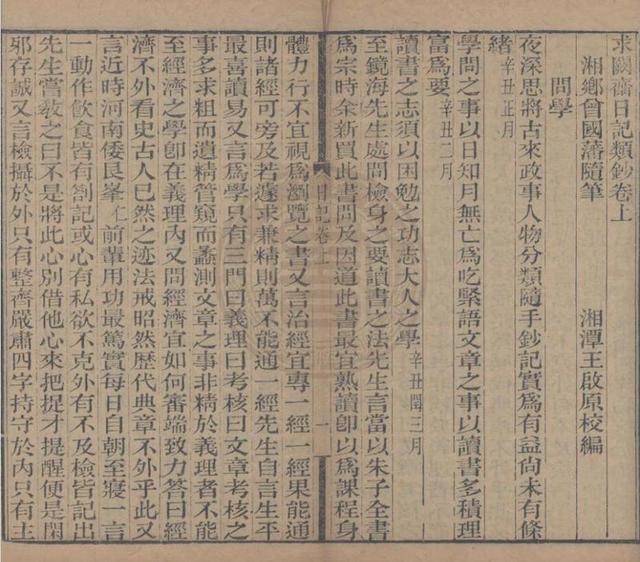 求闕齋日記類鈔卷上
湘鄉曾國藩隨筆　湘潭王啟原校編
問學
夜深思將古來政事人物分類隨手鈔記實為有益尚未有條
緒辛丑正月
學問之事以日知月無亡為吃緊語文章之事以讀書多積理
富為要辛丑二月
讀書之志須以困勉之功志大人之學辛丑閏三月
至鏡海先生處問檢身之要讀書之法先生言當以朱子全書
為宗時余新買此書問及因道此書最宜熟讀即以為課程身
日記卷上
一
體力行不宜視為瀏覽之書又言治經宜專一經一經果能通
則諸經可旁及若遽求兼精則萬不能通一經先生自言生平
最喜讀易又言為學只有三門曰義理曰考核曰文章考核之
事多求粗而遺精管窺而蠡測文章之事非精於義理者不能
至經濟之學即在義理內又問經濟宜如何審端致力答曰經
濟不外看史古人已然之迹法戒昭然歷代典章不外乎此又
言近時河南倭艮峯仁前輩用功最篤實每日自朝至寢一言
一動作飲食皆有劄記或心有私欲不克外有不及檢皆記出
先生嘗教之曰不是將此心別借他心來把捉才提醒便是閑
邪存誠又言檢攝於外只有整齊嚴肅四字持守於內只有主